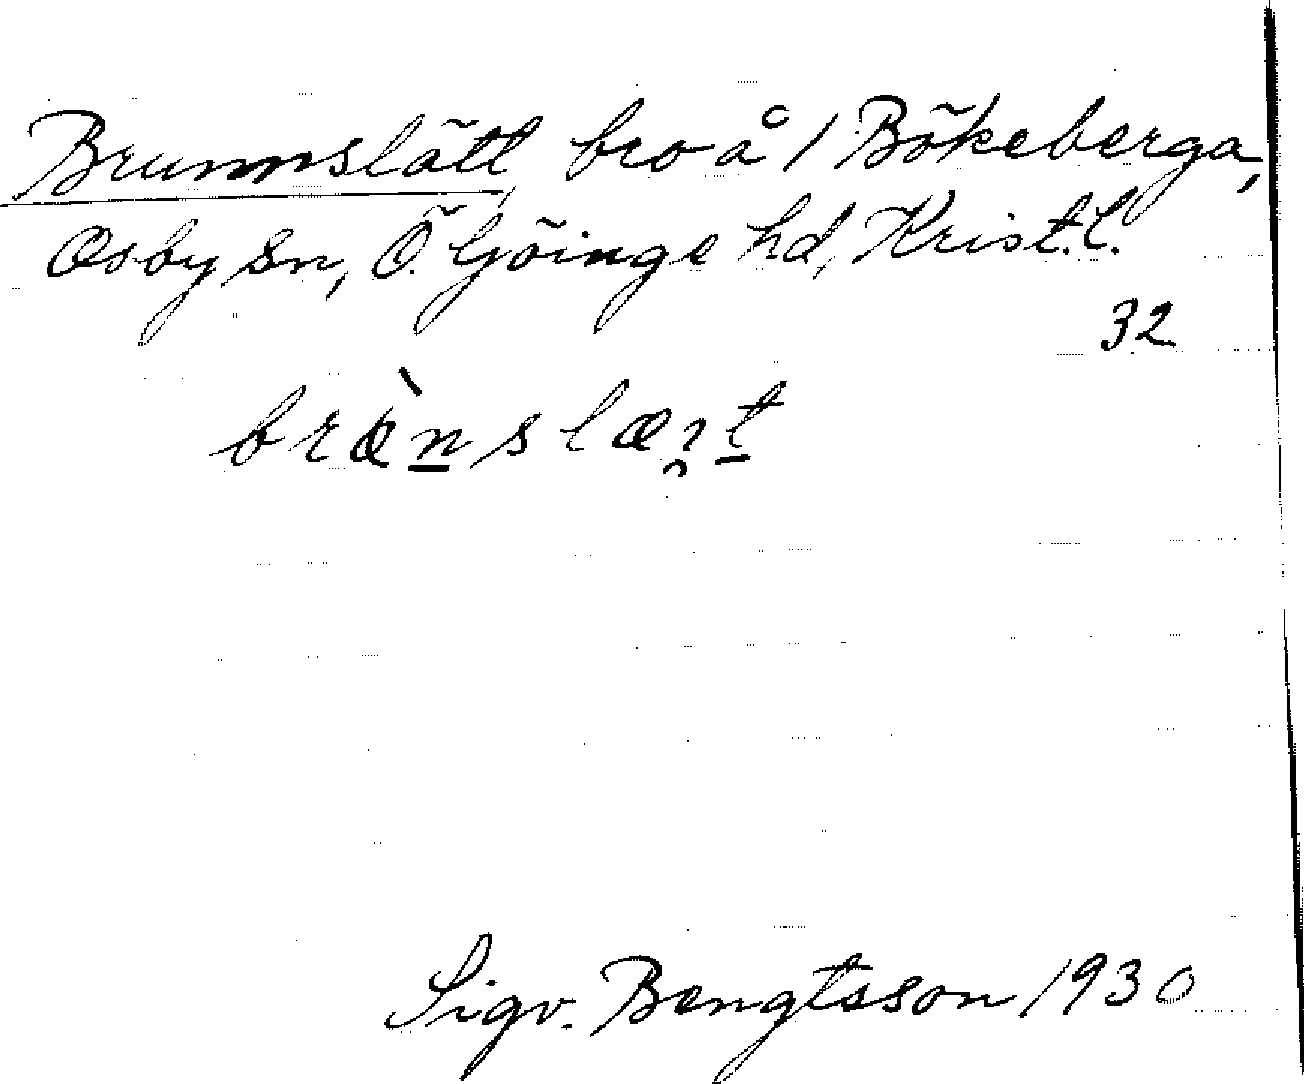 Brunnslätt, bro å 1 Bökeberga,
Osby sn, Ö. Göinge hd, Krist. l.
32
Sigv. Bengtsson 1930